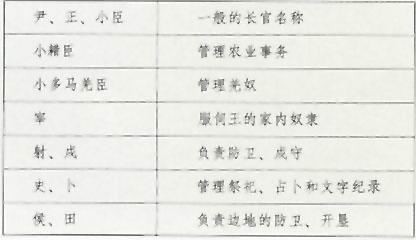 尹、正、小臣 一般的长官名称
小耤臣 管理农业事务
小多马羌臣 管理羌奴
宰 服伺王的家内奴隶
射、戍 负责防卫、戍守
史、卜 管理祭祀、占卜和文字纪录
侯、田 负责边地的防卫、开垦